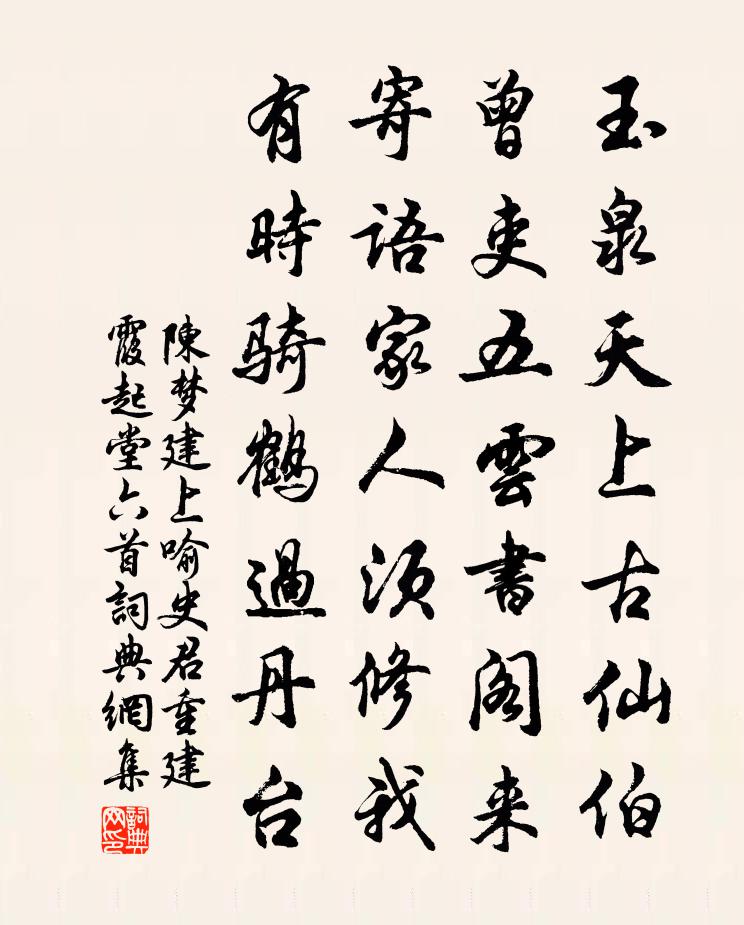 玉泉天上古仙伯
曾吏五雲書閣来
寄語家人須修我
有時騎鶴過丹台
陳梦建上喻史君重建
霞起堂六首詞典網集
詞典网印